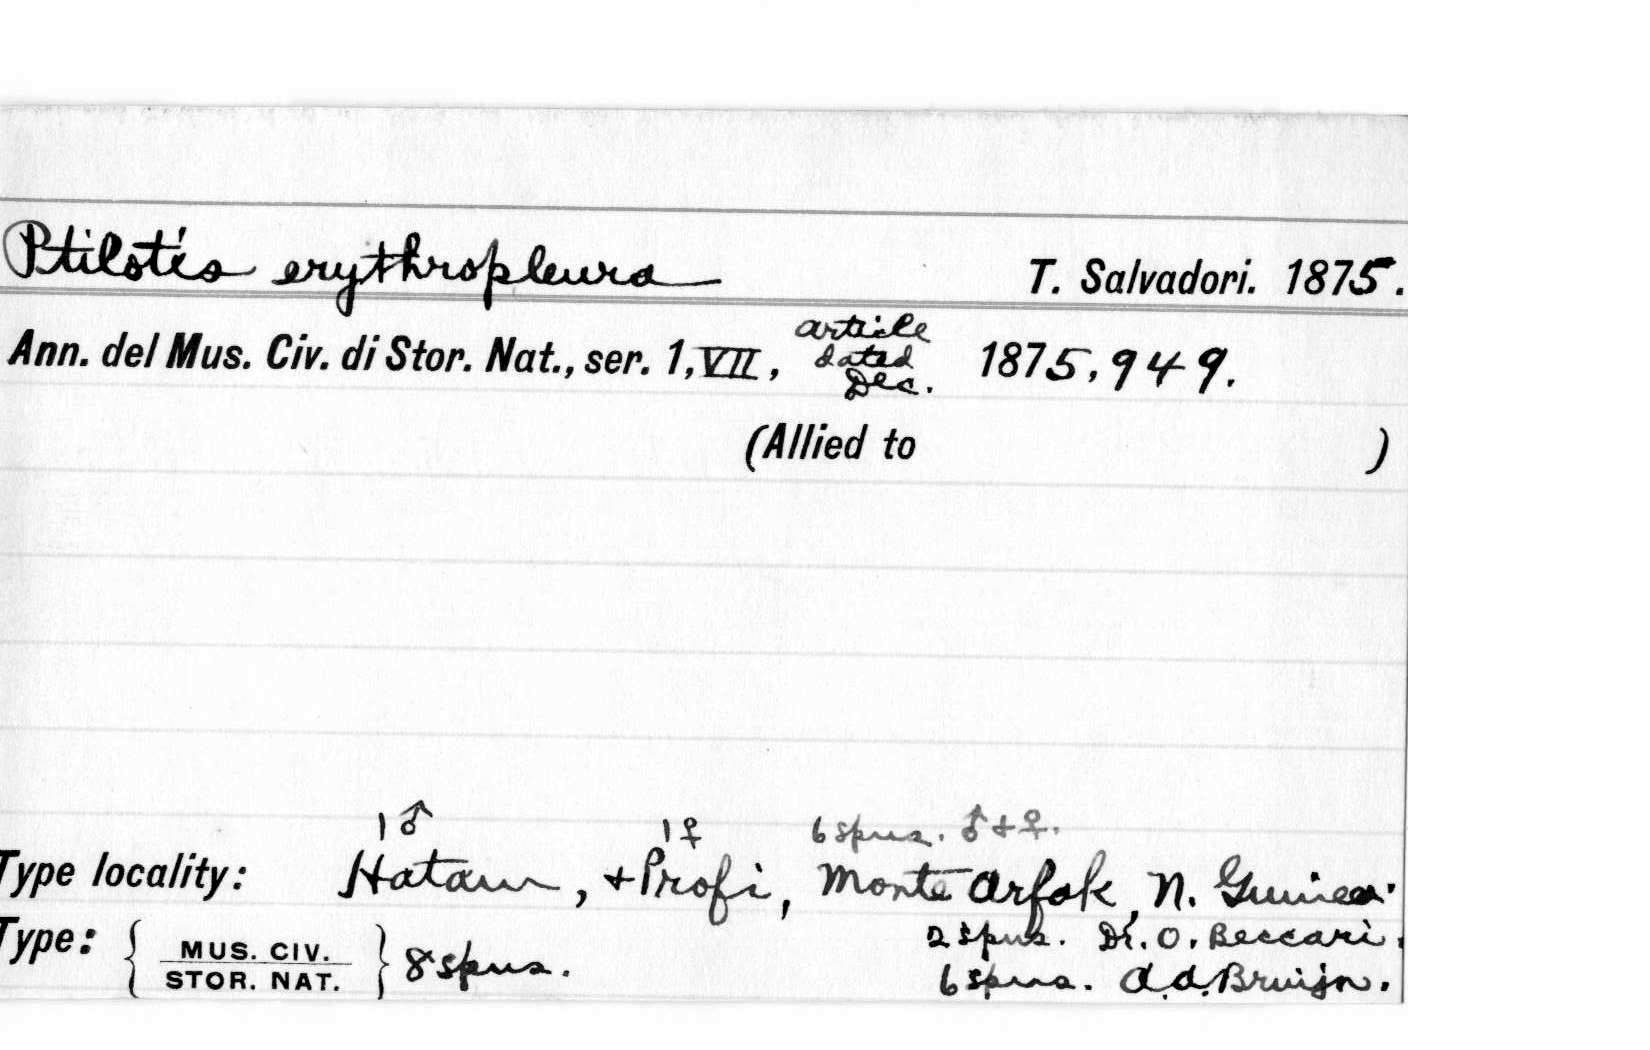 Ptilotis erythropleura T. Salvadori. 1875.
Ann. del Mus. Civ. di Stor. Nat., ser. 1, VII, article dated Dec. 1875, 949.
(Allied to )
1 ♂ 1 ♀ 6 spns. ♂ + ♀.
Type locality: Hatam, + Profi, Monte Arfak, N. Guinea.
2 spns. Dr. O. Beccari.
Type: { MUS. CIV. STOR. NAT. } 8 spns.
6 spns. A.A. Bruijn.